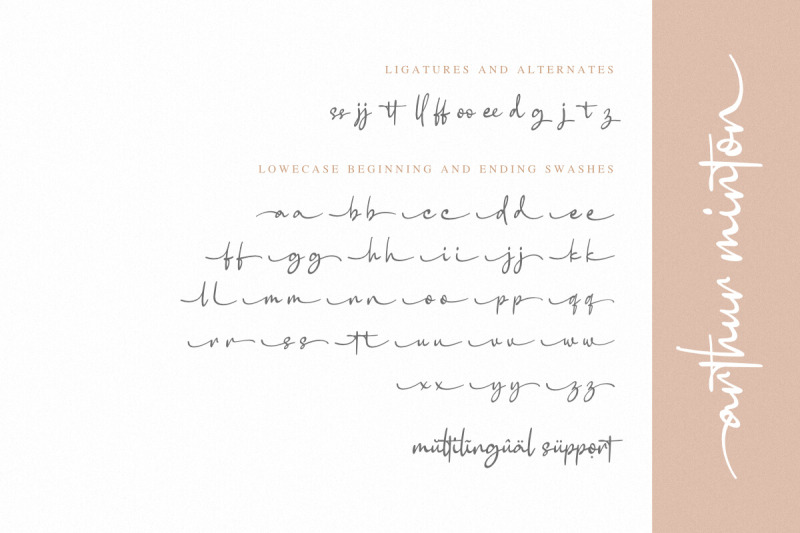 LIGATURES AND ALTERNATES
ss jj tt ll ff oo ee d g j t z
LOWECASE BEGINNING AND ENDING SWASHES
aa bb cc dd ee
ff gg hh ii jj kk
ll mm nn oo pp qq
rr ss tt uu vv ww
xx yy zz
mültïlïngûäl süppọrt
arthur minton